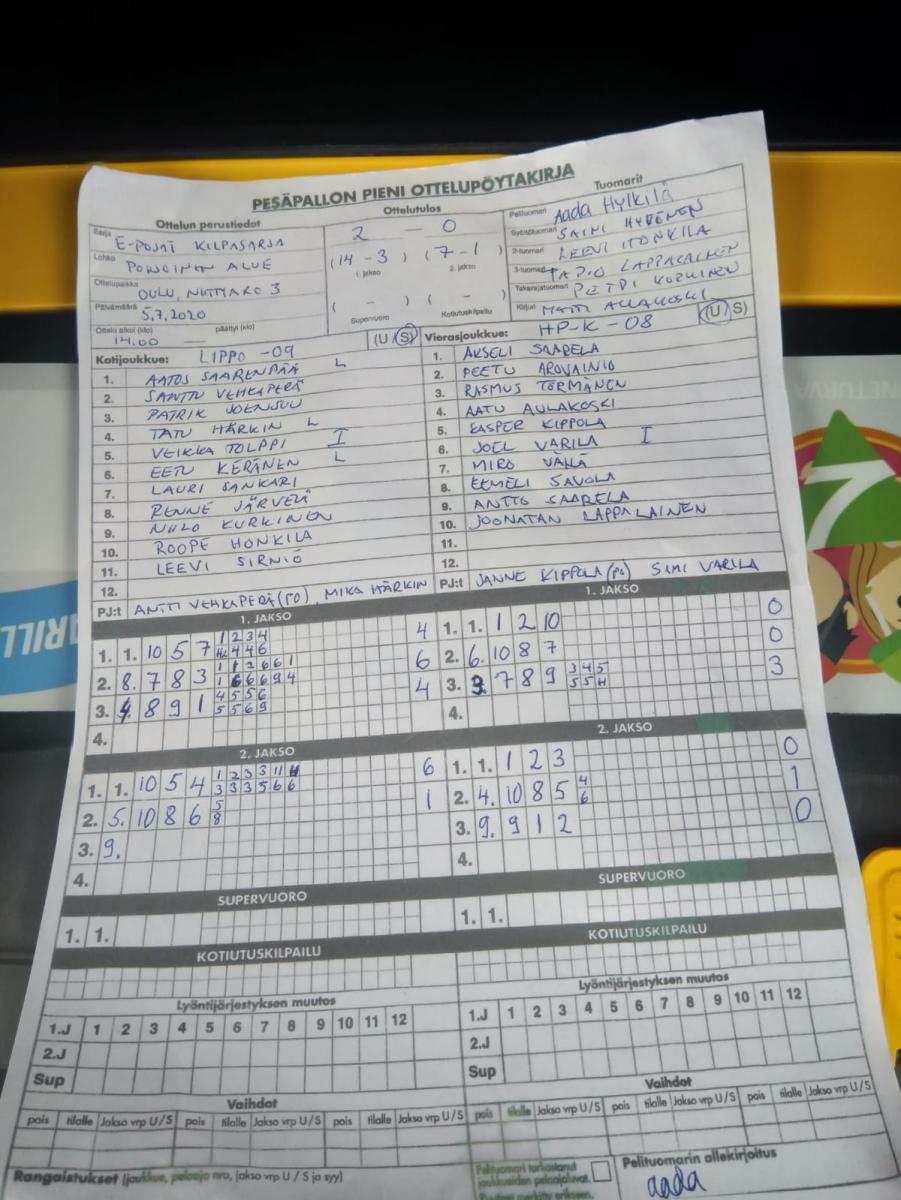 PESÄPALLON PIENI OTTELUPÖYTÄKIRJA
Ottelun perustiedot
Sarja E-POJAT KILPASARJA
Lohko POHJOINEN ALUE
Ottelupaikka OULU, NIITTYARO 3
Päivämäärä 5.7.2020
Ottelu alkoi (klo) 14.00 päättyi (klo) —
Ottelutulos
2 — 0
(14 - 3) (7 - 1)
1. jakso 2. jakso
( - ) ( - )
Supervuoro Kotiutuskilpailu
Tuomarit
Pelituomari Aada Hylkilä
Syöttötuomari SAINI HYVÖNEN
2-tuomari LEEVI ITONKILA
3-tuomari TAPIO LAPPALAINEN
Takarajatuomari PETRI KURKINEN
Kirjuri MATTI AULAKOSKI
Kotijoukkue: LIPPO -09 (U/S)
1. AATOS SAARENPÄÄ L
2. SANTTU VEHKAPERÄ
3. PATRIK JOENSUU
4. TATU HÄRKIN L
5. VEIKKA TOLPPI I
6. EETU KERÄNEN L
7. LAURI SANKARI
8. RENNE JÄRVELÄ
9. NIILO KURKINEN
10. ROOPE HONKILA
11. LEEVI SIRNIÖ
12.
PJ:t ANTTI VEHKAPERÄ (PO), MIKA HÄRKIN
Vierasjoukkue: HP-K -08 (U/S)
1. AKSELI SAARELA
2. PEETU AROVAINIO
3. RASMUS TÖRMÄNEN
4. AATU AULAKOSKI
5. KASPER KIPPOLA
6. JOEL VARILA I
7. MIRO VÄLLÄ
8. EEMELI SAVOLA
9. ANTTO SAARELA
10. JOONATAN LAPPALAINEN
11.
12.
PJ:t JANNE KIPPOLA (PO) SAMI VARILA
1. JAKSO
1. 1. 10 5 7 1 2 3 4 4
4 4 6
2. 8. 7 8 3 1 1 2 6 6 1 6
1 6 6 6 9 4
3. 4. 8 9 1 4 5 5 6 4
5 5 6 9
4.
1. JAKSO
1. 1. 1 2 10 0
2. 6. 10 8 7 0
3. 3. 7 8 9 3 4 5 3
5 5 H
4.
2. JAKSO
1. 1. 10 5 4 1 2 3 3 11 4 6
3 3 3 5 6 6
2. 5. 10 8 6 5 1
8
3. 9.
4.
2. JAKSO
1. 1. 1 2 3 0
2. 4. 10 8 5 4 1
6
3. 9. 9 1 2 0
4.
SUPERVUORO
1. 1.
SUPERVUORO
1. 1.
KOTIUTUSKILPAILU
KOTIUTUSKILPAILU
Lyöntijärjestyksen muutos
1.J 1 2 3 4 5 6 7 8 9 10 11 12
2.J
Sup
Lyöntijärjestyksen muutos
1.J 1 2 3 4 5 6 7 8 9 10 11 12
2.J
Sup
Vaihdot
pois tilalle Jakso vrp U/S pois tilalle Jakso vrp U/S
Vaihdot
pois tilalle Jakso vrp U/S pois tilalle Jakso vrp U/S
Rangaistukset (joukkue, pelaaja nro, jakso vrp U / S ja syy)
Pelituomari tarkastanut
joukkueiden pelaajaluvat.
Pelituomarin allekirjoitus
aada
NETURVA